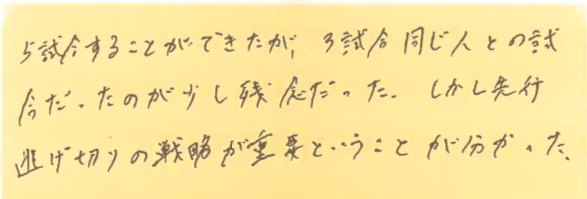 5試合することができたが、3試合同じ人との試
合だったのが少し残念だった。しかし先行
逃げ切りの戦略が重要ということが分かった。